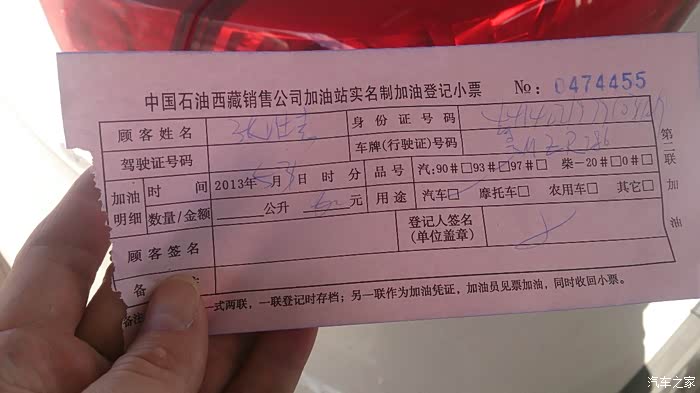 中国石油西藏销售公司加油站实名制加油登记小票 №：0474455
顾客姓名 身份证号码
驾驶证号码 车牌(行驶证)号码
加油明细 时间 2013年5月31日 时 分 品号 汽:90#□93#□97#□ 柴-20#□0#□
数量/金额 公升 元 用途 汽车□ 摩托车□ 农用车□ 其它□
顾客签名 登记人签名(单位盖章)
备
备注 一式两联，一联登记时存档；另一联作为加油凭证，加油员见票加油，同时收回小票。
第二联 加油
汽车之家